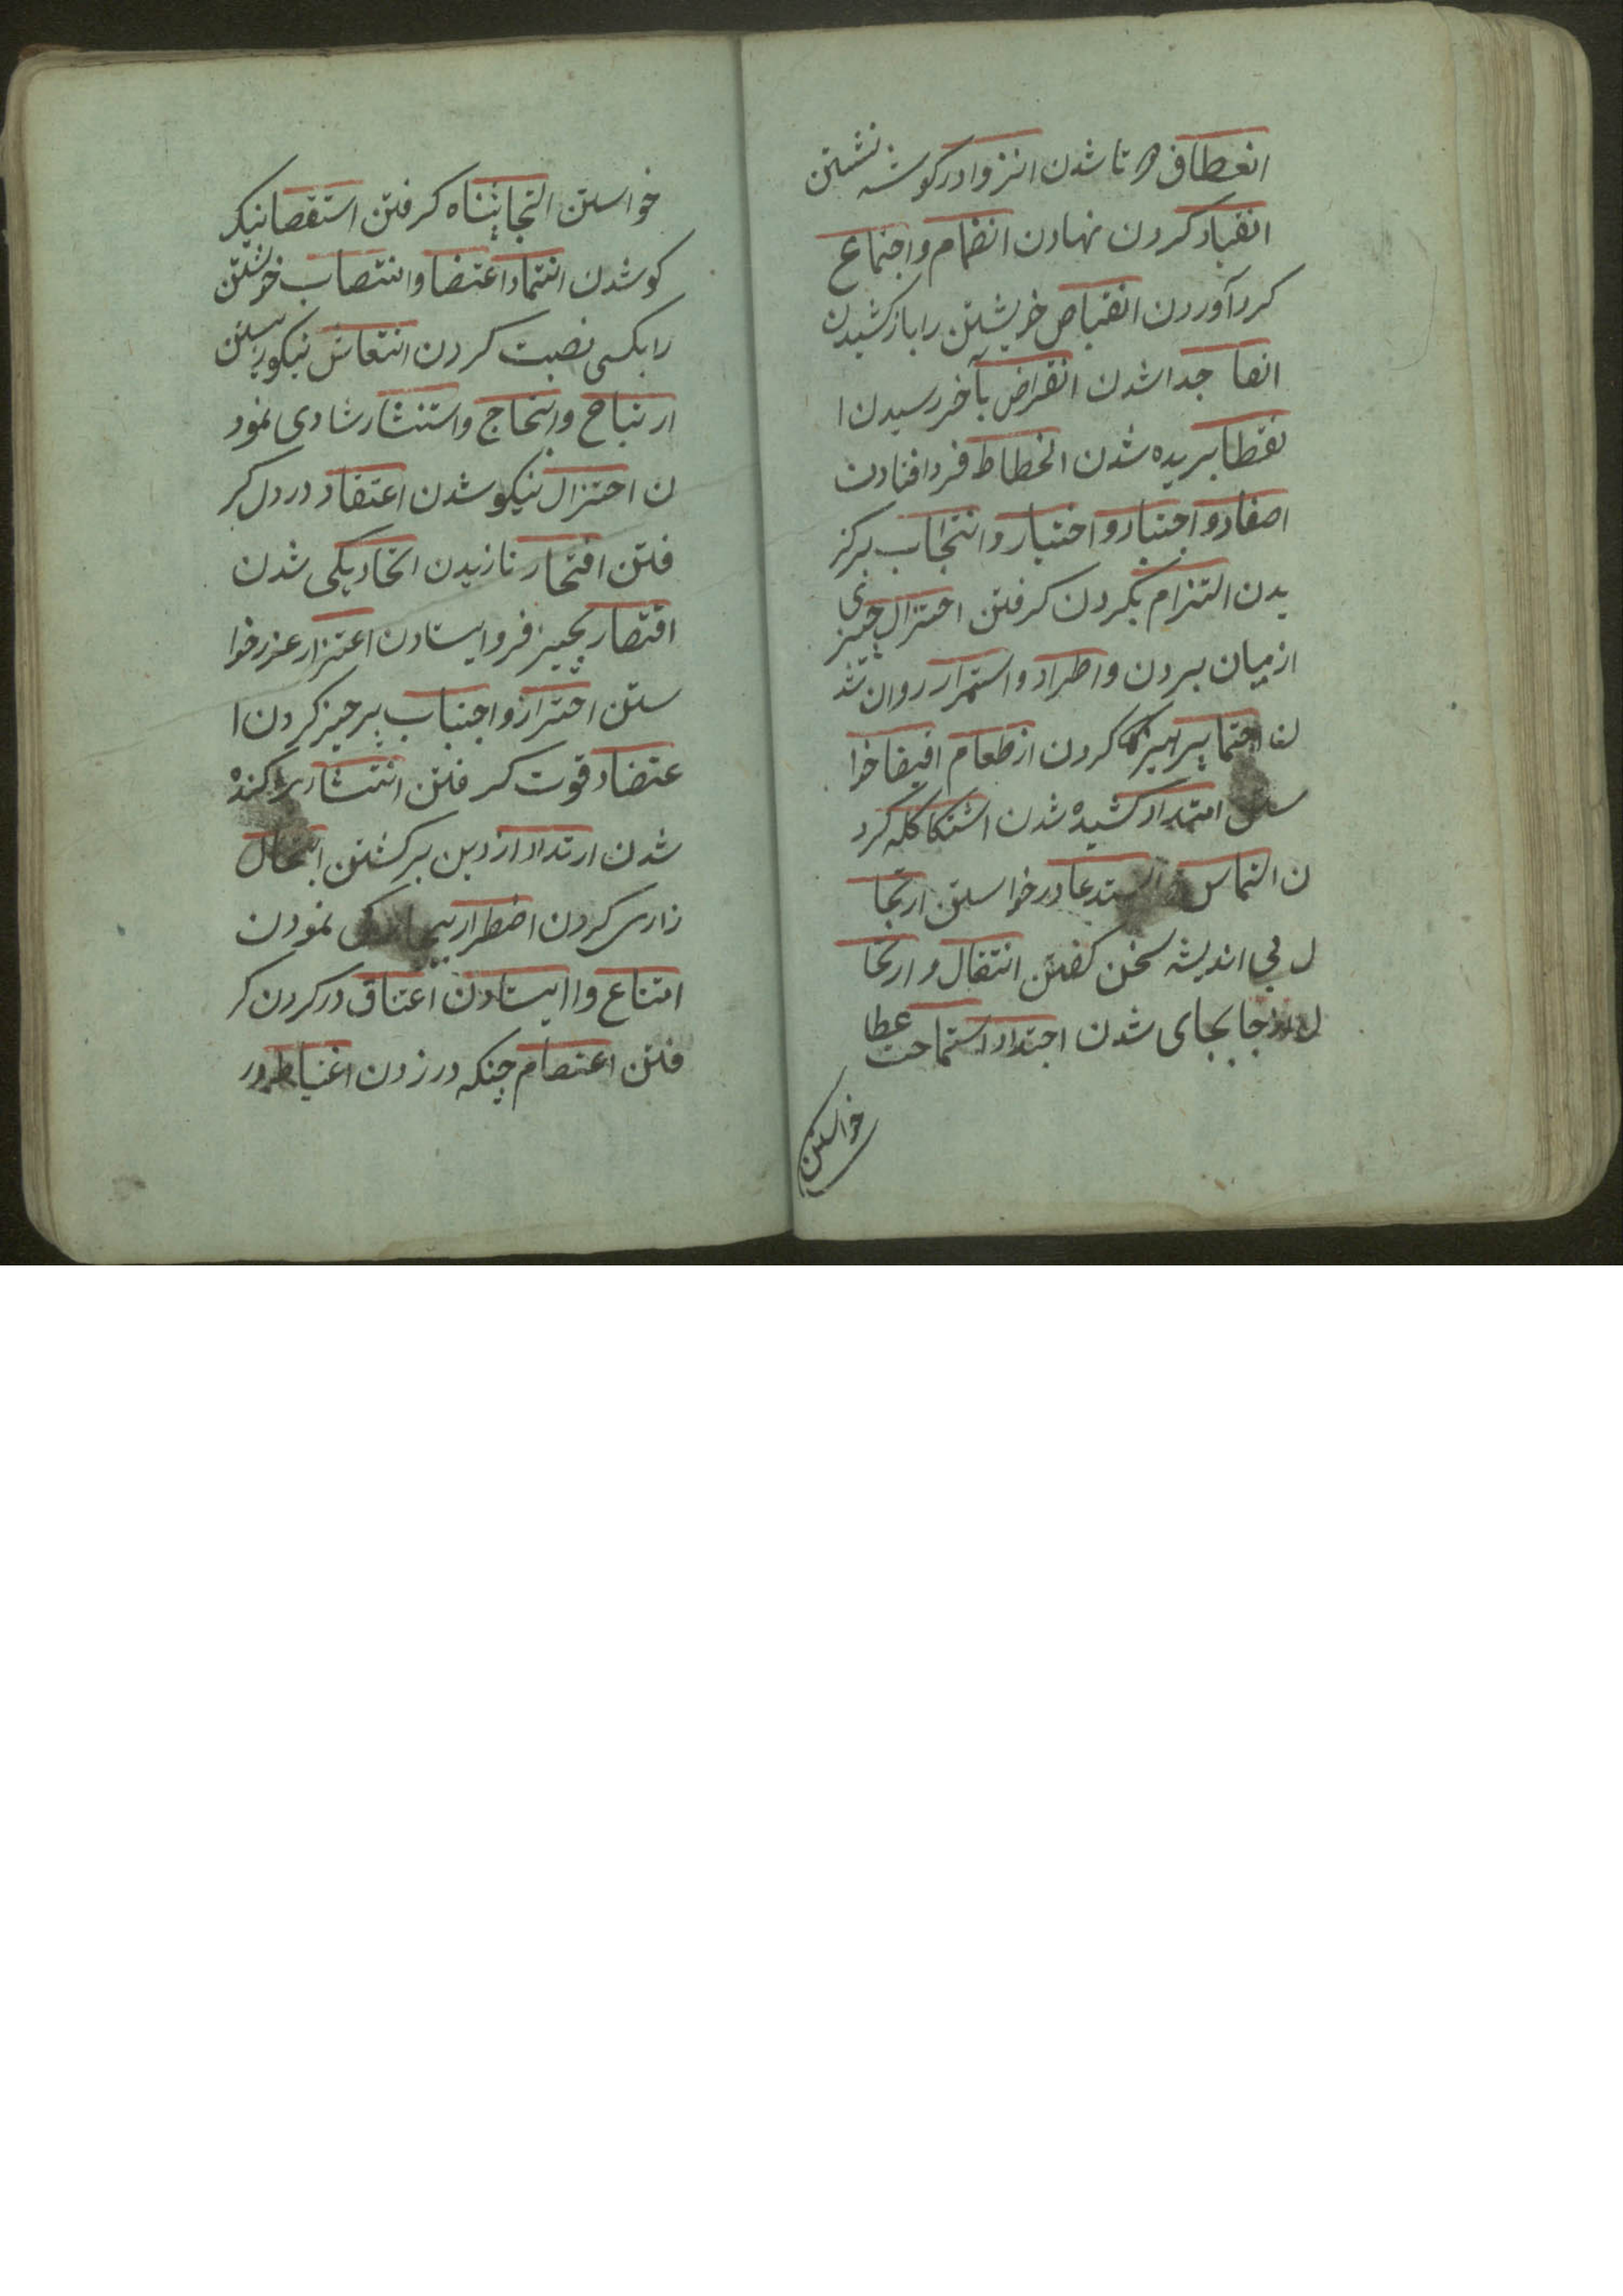 انعطاف دو تا شدن انزوا در کوشه نشستن
انقیاد کردن نهادن انضمام و اجتماع
کرد آوردن انقباض خویشتن را باز کشیدن
انفا جدا شدن انقراض بآخر رسیدن ا
نقطا بریده شدن انحطاط فرو افتادن
اصفاد و اجتبار و اختیار و انتجاب برکز
یدن التزام بکردن کرفتن احتزال چیزی
از میان بردن و اطراد و استمرار روان شد
ن احتما پرهیز کردن از طعام افیضا خوا
ستن امتداد کشیده شدن اشتکا کله کرد
ن التماس و استدعا در خواستن ارتجا
ل بی اندیشه سخن کفتن انتقال و ارتحا
ل از جا بجای شدن اجتدا و استماحت عطا
خواستن
خواستن التجا پناه کرفتن استقصا نیک
کو شدن انتما و اعتضا و انتصاب خویشتن
را بکسی نصبت کردن انتعاش نیکو زیستن
ارتیاح و ابتهاج و استبشار شادی نمود
ن احتزال نیکو شدن اعتقاد در دل کر
فتن افتخار نازیدن اتحاد یکی شدن
اقتصار بچیز فرو ایستادن اعتزار عزر خوا
ستن احتراز و اجتناب پرحیز کردن ا
عتضاد قوت کر فتن انتشار پراکنده
شدن ارتداد از دین برکشتن ابتهال
زاری کردن اضطرار بیچارکی نمودن
امتناع وا ایستادن اعتناق در کردن کر
فتن اعتصام چنکه در زدن اغتباط در